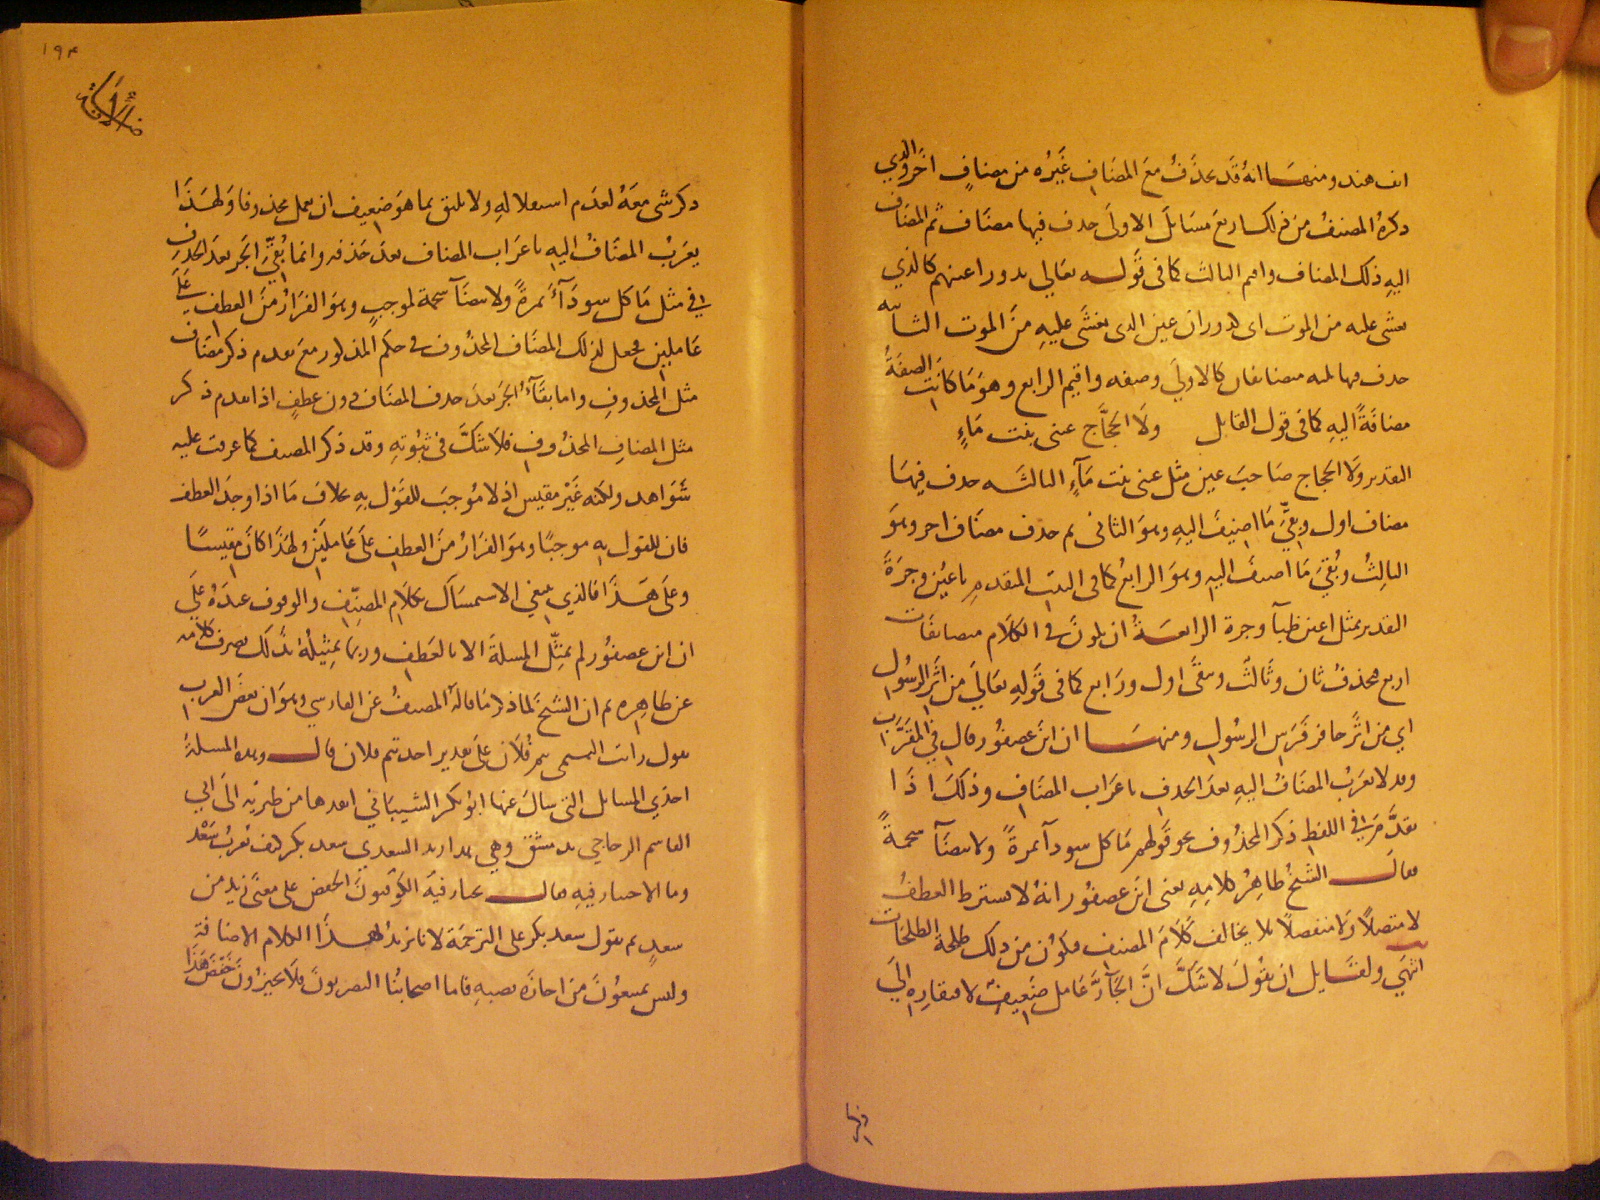 انف هند ومنها انه قد يحذف مع المضاف غيره من مضاف اخر والذي
ذكره المصنف من ذلك اربع مسائل الاولى حذف فيها مضاف ثم المضاف
اليه ذلك المضاف واقيم الثالث كما في قوله تعالى تدور اعينهم كالذي
يغشى عليه من الموت اي كدوران عين الذي يغشى عليه من الموت الثانية
حذف فيها ثلثه مضافان كالاولى وصفه واقيم الرابع وهو ما كانت الصفة
مضافة اليه كما في قول القايل ولا الحجاج عيني بنت ماء
التقدير ولا الحجاج صاحب عين مثل عيني بنت ماء الثالثه حذف فيها
مضاف اول وبقي ما اضيف اليه وهو الثاني ثم حذف مضاف اخر وهو
الثالث وبقي ما اضيف اليه وهو الرابع كما في البيت المتقدم باعين وجرة
التقدير بمثل اعين ظبآ وجرة الرابعة ان يكون في الكلام مضافات
اربع يحذف ثان وثالث ويبقى اول ورابع كما في قوله تعالى من اثر الرسول
اي من اثر حافر فرس الرسول ومنها ان ابن عصفور قال في المقرب
وقد لا يعرب المضاف اليه بعد الحذف باعراب المضاف وذلك اذا
تقدم في اللفظ ذكر المحذوف نحو قولهم ما كل سودآ تمرة ولا بيضآ شحمة
قال الشيخ ظاهر كلامه يعني ابن عصفور انه لا يشترط العطف
لا متصلا ولا منفصلا فلا يخالف كلام المصنف فيكون من ذلك طلحة الطلحات
انتهى ولقايل ان يقول لا شك ان الجار عامل ضعيف لا افتقاره الى
١٩٤
ذكر شي معه لعدم استقلاله ولا يليق بما هو ضعيف ان يعمل محذوفا ولهذا
يعرب المضاف اليه باعراب المضاف بعد حذفه وانما بقي الجر بعد الحذف
في مثل ما كل سودآء تمرة ولا بيضآ شحمة لموجب وهو الفرار من العطف على
عاملين فجعل لذلك المضاف المحذوف في حكم المذكور مع تقدم ذكر مضاف
مثل المحذوف واما بقآء الجر بعد حذف المضاف دون عطف اذا تقدم ذكر
مثل المضاف المحذوف فلا شك في ثبوته وقد ذكر المصنف كما عرفت عليه
شواهد ولكنه غير مقيس اذ لا موجب للقول به بخلاف ما اذا وجد العطف
فان للقول به موجبا وهو الفرار من العطف على عاملين ولهذا كان مقيسا
وعلى هذا فالذي ينبغي الاستمساك بكلام المصنف والوقوف عنده على
ان ابن عصفور لم يمثل المسلة الا بالعطف وربما تمثيله بذلك يصرف كلامه
عن ظاهره ثم ان الشيخ لما ذكر ما قاله المصنف عن الفارسي وهو ان بعض العرب
يقول رايت التيمي تيم فلان على تقدير احد تيم فلان قال وهذه المسلة
احدي المسائل التي سال عنها ابو بكر الشيباني انفدها من طبريه الى ابي
القاسم الزجاجي بدمشق وهي هذا زيد السعدي سعد بكر كيف تعرب سعد
وما الاختيار فيه فقال يختار فيه الكوفيون الخفض على معنى زيد من
سعد ثم تقول سعد بكر على الترجمة لانا نريد لهذا الكلام الاضافة
وليس يمنعون من اجازه نصبه فاما اصحابنا البصريون فلا يجيزون خفض هذا